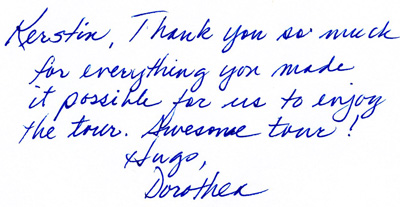 Kerstin, Thank you so much
for everything you made
it possible for us to enjoy
the tour. Awesome tour!
Hugs,
Dorothea